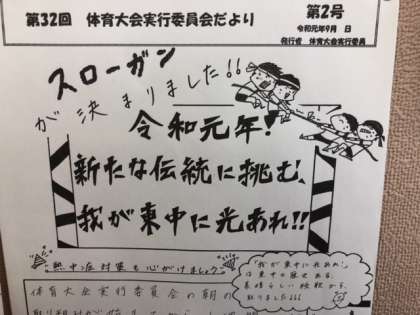 第32回　体育大会実行委員会だより
第2号
令和元年9月　日
発行者　体育大会実行委員
スローガン
が決まりました!!
令和元年!
新たな伝統に挑む、
我が東中に光あれ!!
熱中症対策も心がけましょう
"我が東中に光あれ"
は東中の歴史ある、
素晴らしい校歌から
取りました!!!
体育大会実行委員会の朝の